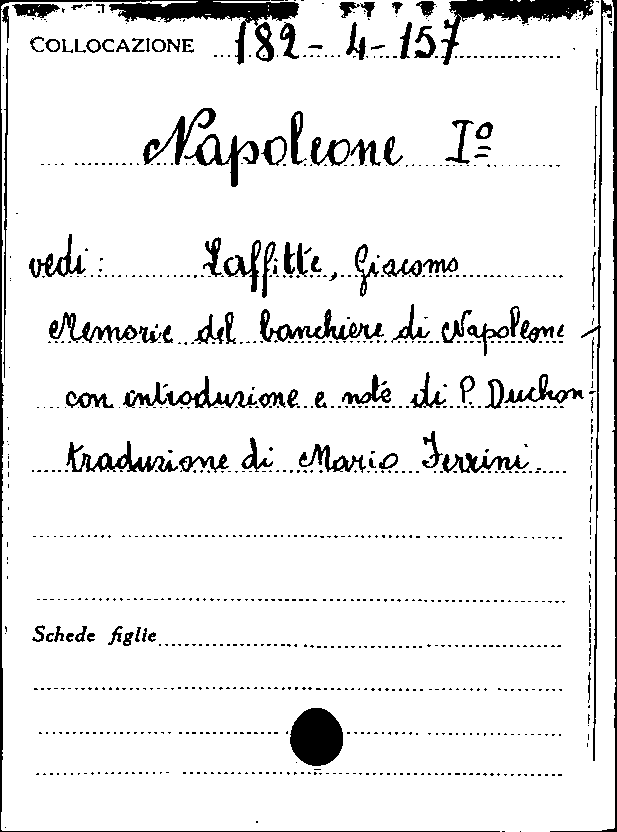 COLLOCAZIONE 182-4-157
Napoleone Iº
vedi: Laffitte, Giacomo
Memorie del banchiere di Napoleone
con introduzione e note di P. Duchon-
traduzione di Mario Ferrini.
Schede figlie